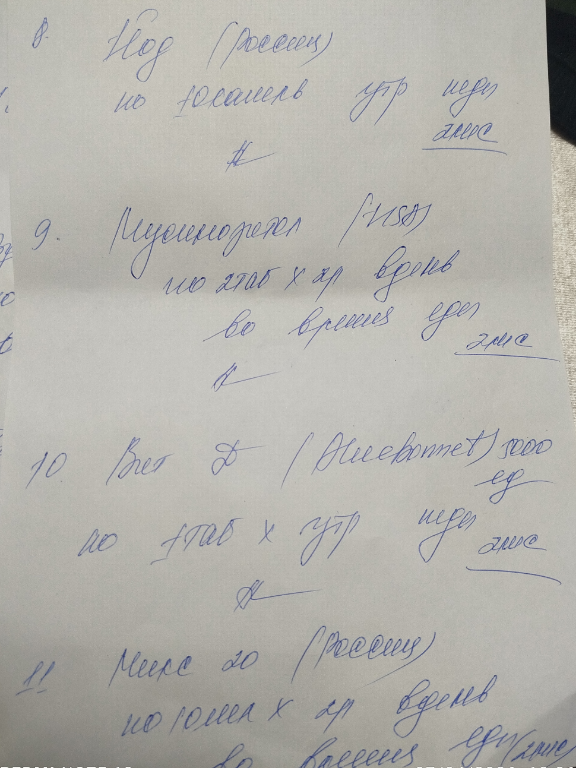 8. Йод (Россия)
по 1 капель утр еды
2мес
#
9. (USA)
по 2таб х 2р в день
во время еды
2мес
#
10. Вит Д (Bluebonnet) 5000
ед
по 1таб х утр еды
2мес
#
11 Микс 20 (Россия)
по 10мл х 2р в день
во время еды (2мес)